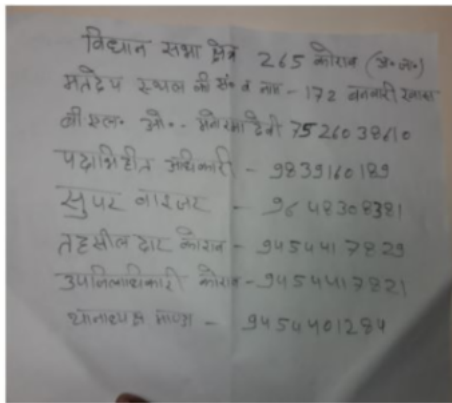 विधान सभा क्षेत्र 265 कोराव (अ॰जा॰)
मतदेय स्थल की सं॰ व नाम - 172 बनवारी खास
बी॰एल॰ ओ॰ - मनोरमा देवी 7526038610
पदाभिहीत अधिकारी - 9839160189
सुपर वाइजर - 9648308381
तहसीलदार कोराव - 9454417829
उपजिलाधिकारी कोराव - 9454417821
थानाध्यक्ष माण्डा - 9454401284